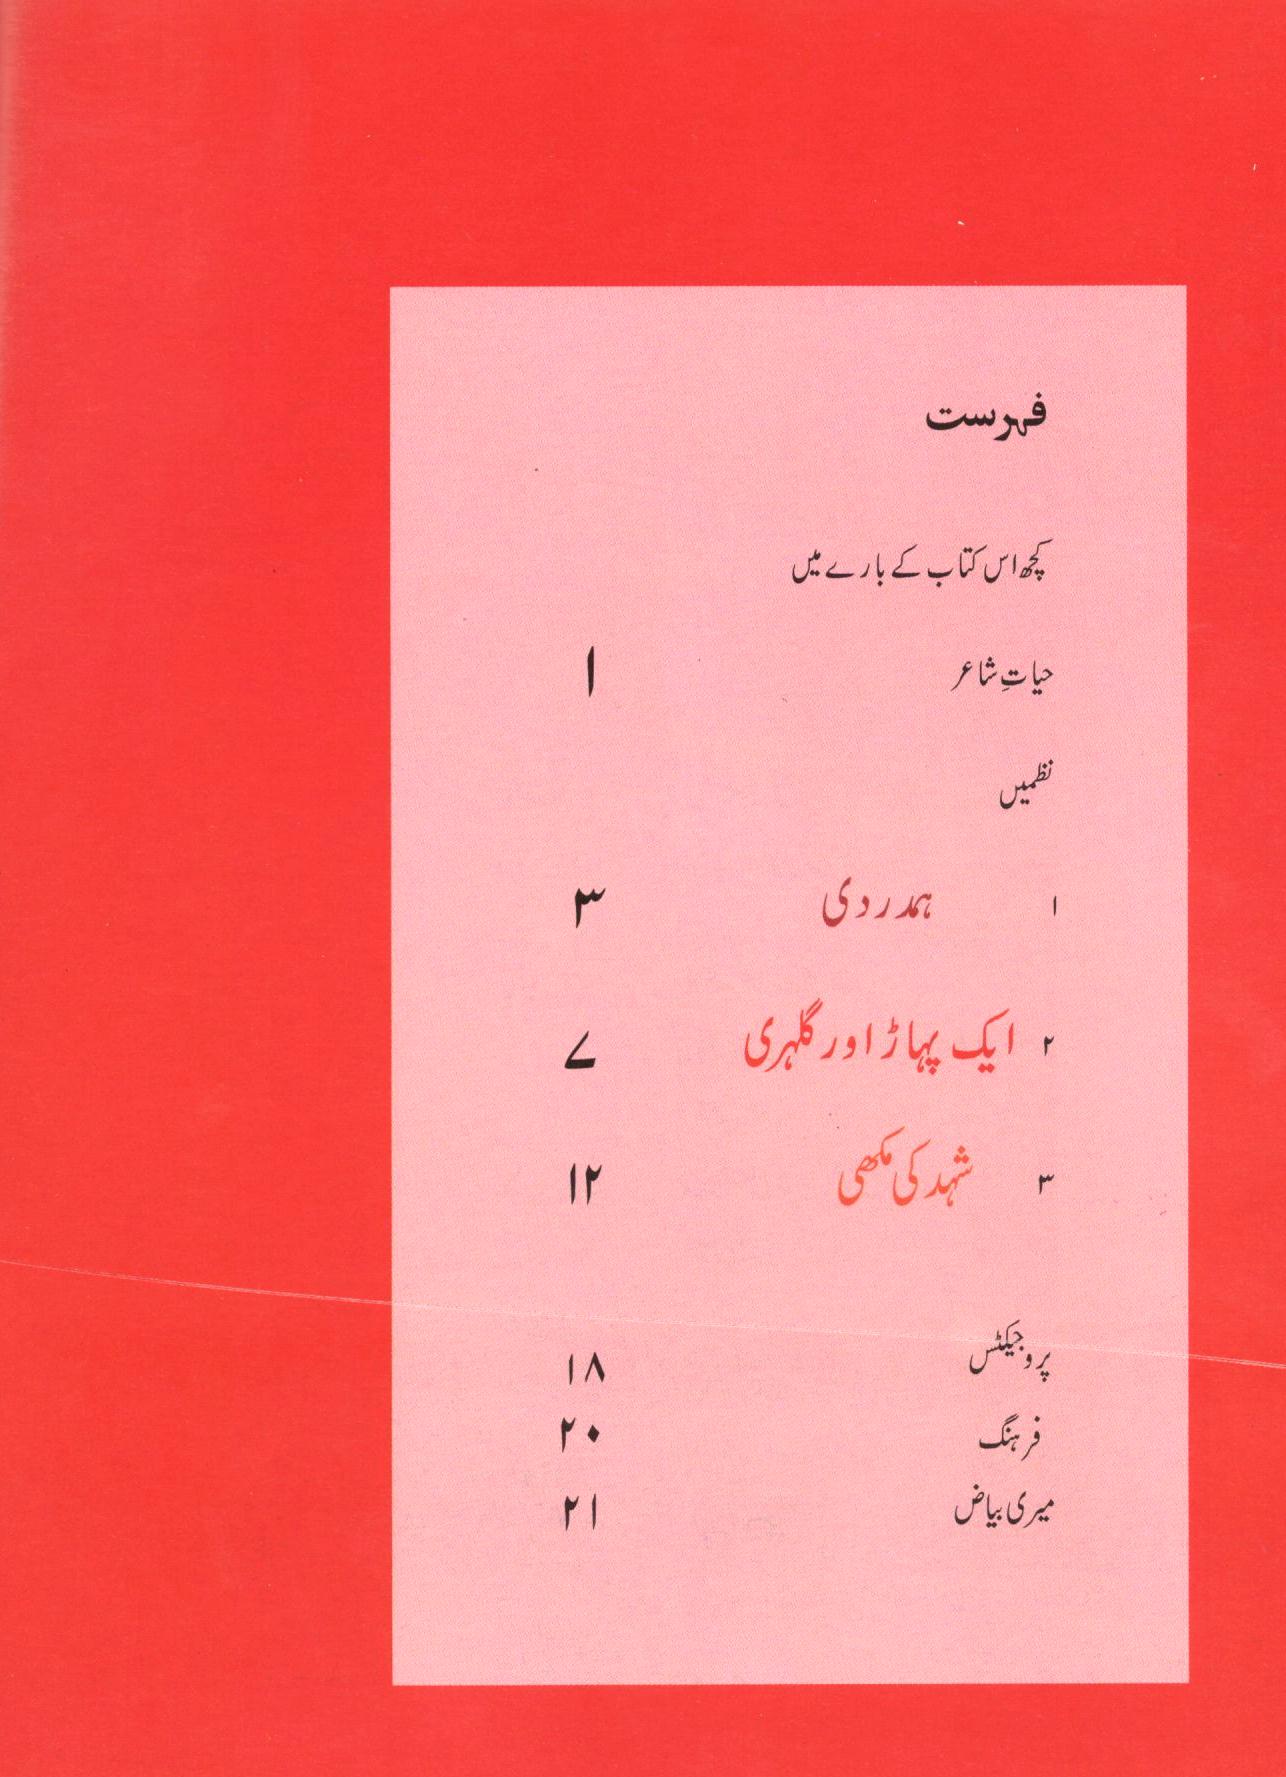 فہرست
کچھ اس کتاب کے بارے میں
حیاتِ شاعر ۱
نظمیں
۱ ہمدردی ۳
۲ ایک پہاڑ اور گلہری ۷
۳ شہد کی مکھی ۱۲
پروجیکٹس ۱۸
فرہنگ ۲۰
میری بیاض ۲۱